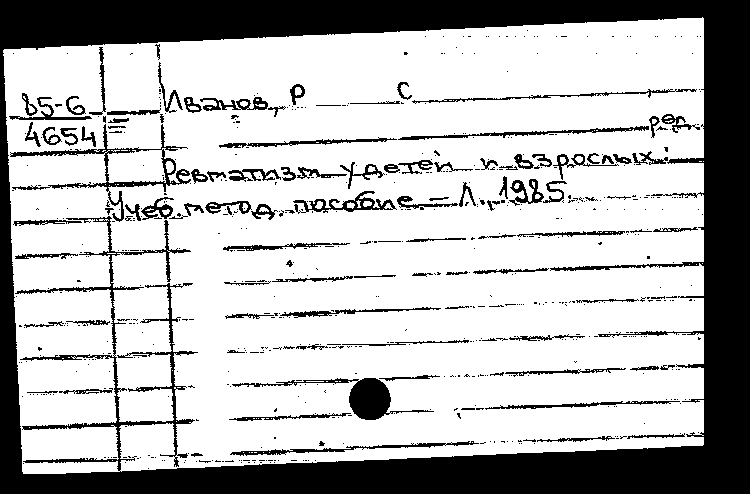 85-6 Иванов, Р С
4654 ред.
Ревматизм у детей и взрослых:
Учеб.метод. пособие. – Л., 1985.